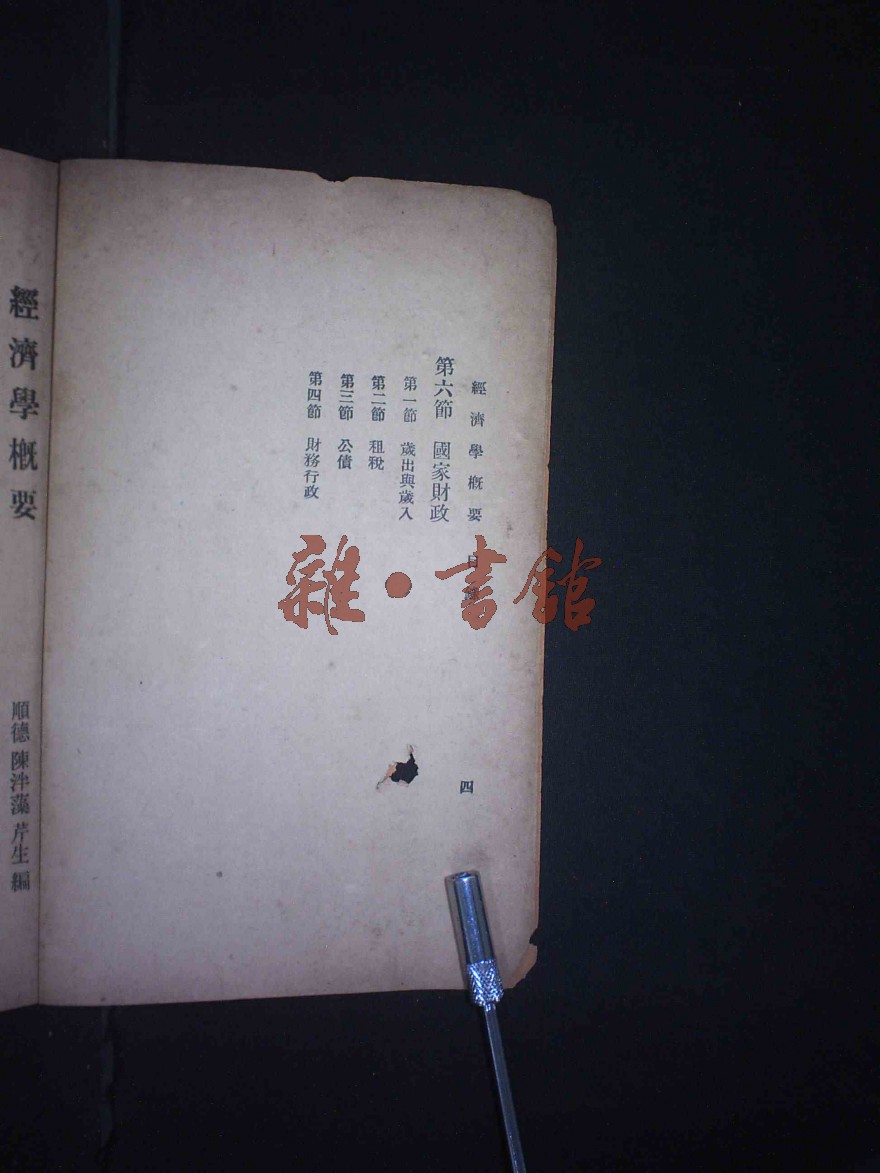 經濟學概要 目
第六節 國家財政
第一節 歲出與歲入
第二節 租稅
第三節 公債
第四節 財務行政
四
經濟學概要
順德 陳泮藻 芹生 編
雜·書館